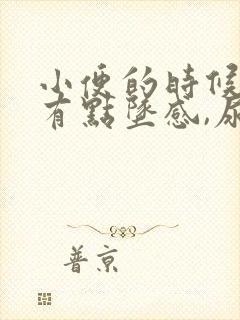 小便的時候
有點墜感,尿
普京